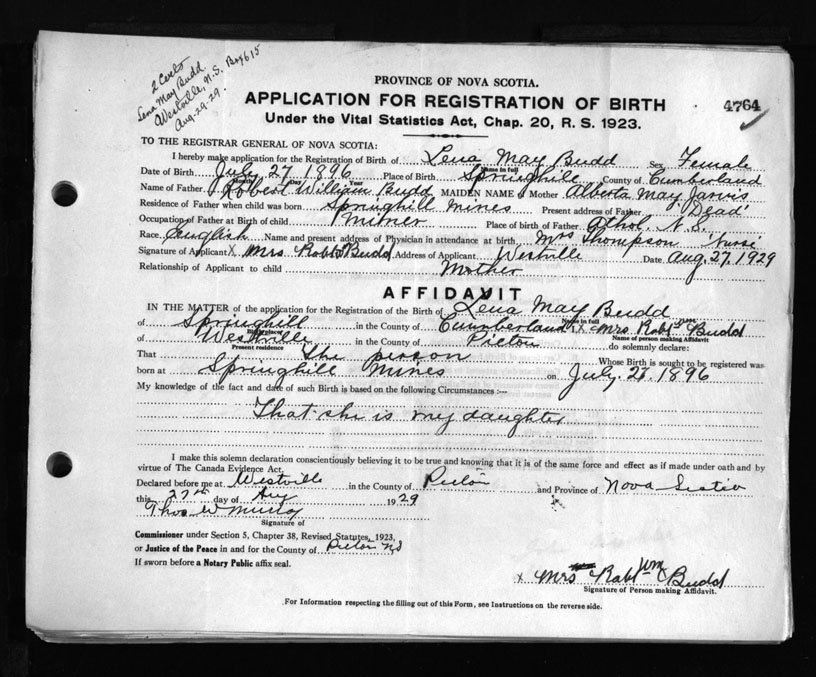 2 Certs
Lena May Budd
Westville, N.S. Box 615
Aug-29-29.
PROVINCE OF NOVA SCOTIA.
APPLICATION FOR REGISTRATION OF BIRTH 4764
Under the Vital Statistics Act, Chap. 20, R. S. 1923.
TO THE REGISTRAR GENERAL OF NOVA SCOTIA:
I hereby make application for the Registration of Birth of Lena May Budd Sex Female
Name in full
Date of Birth July 27 1896 Place of Birth Springhill County of Cumberland
Day Year
Name of Father Robert William Budd MAIDEN NAME of Mother Alberta May Jarvis
Residence of Father when child was born Springhill Mines Present address of Father "Dead"
Occupation of Father at Birth of child Miner Place of birth of Father Athol N.S.
Race English Name and present address of Physician in attendance at birth Mrs Thompson Nurse
Signature of Applicant X Mrs Robt Budd Address of Applicant Westville Date Aug. 27, 1929
Relationship of Applicant to child Mother
AFFIDAVIT
IN THE MATTER of the application for the Registration of the Birth of Lena May Budd
Name in full
of Springhill in the County of Cumberland X Mrs Robt Wm Budd
Birthplace Name of person making Affidavit
of Westville in the County of Pictou do solemnly declare:
Present residence
That She person Whose Birth is sought to be registered was
born at Springhill Mines on July. 27. 1896
My knowledge of the fact and date of such Birth is based on the following Circumstances :—
That she is my daughter
I make this solemn declaration conscientiously believing it to be true and knowing that it is of the same force and effect as if made under oath and by
virtue of The Canada Evidence Act.
Declared before me at Westville in the County of Pictou and Province of Nova Scotia
this 27th day of Aug 1929
Thos W Murray
Signature of
Commissioner under Section 5, Chapter 38, Revised Statutes, 1923,
or Justice of the Peace in and for the County of Pictou NS
If sworn before a Notary Public affix seal.
x Mrs Robt Wm Budd
Signature of Person making Affidavit.
For Information respecting the filling out of this Form, see Instructions on the reverse side.